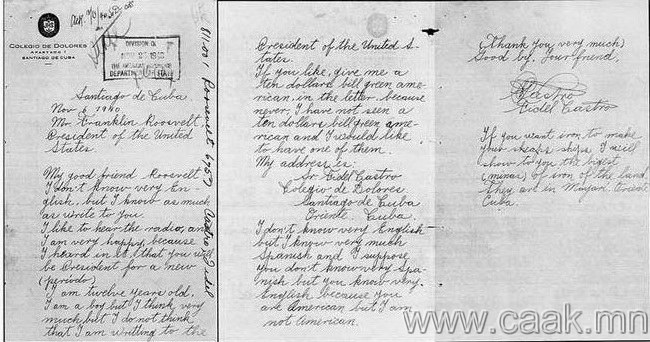 COLEGIO DE DOLORES
APARTADO 1
SANTIAGO DE CUBA
DIVISION OF
THE AMERICAN REPUBLICS
DEPARTMENT OF STATE
811.001 Roosevelt, F.D./6757
Castro, Fidel
Santiago de Cuba.
Nov 6 1940.
Mr Franklin Roosvelt
President of the United
States.
My good friend Roosvelt
I don't know very En-
glish, but I know as much
as write to you.
I like to hear the radio, and
I am very happy, because
I heard in it, that you will
be President for a new
(periodo)
I am twelve years old.
I am a boy but I think very
much but I do not think
that I am writting to the
President of the United S-
tates.
If you like, give me a
ten dollars bill green ame-
rican, in the letter, because
never, I have not seen a
ten dollars bill green ame-
rican and I would like
to have one of them.
My address is:
Sr. Fidel Castro
Colegio de Dolores
Santiago de Cuba
Oriente. Cuba.
I don't know very English
but I know very much
Spanish and I suppose
you don't know very Spa-
nish but you know very
English because you
are American but I am
not American.
(Thank you very much)
Good by. Your friend,
F Castro
Fidel Castro
If you want iron to make
your sheaps ships I will
show to you the bigest
(minas) of iron of the land.
They are in Mayari. Oriente
Cuba.
www.caak.mn